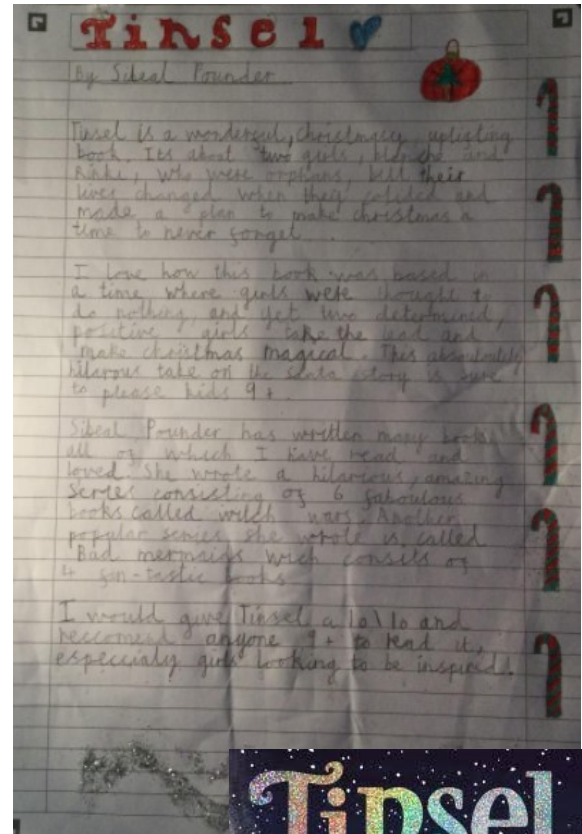 Tinsel
By Sibeal Pounder
Tinsel is a wonderful, christmassy, upligting
book. Its about two girls, blanche and
Rinki, who were orphans, but their
lives changed when they colided and
made a plan to make christmas a
time to never forget...
I love how this book was based in
a time where girls were thought to
do nothing, and yet two determined,
positive girls take the lead and
make christmas magical. This absoulutely
hilarous take on the santa story is sure
to please kids 9+.
Sibeal Pounder has written many books
all of which I have read and
loved. She wrote a hilarious, amazing
series consisting of 6 faboulous
books called witch wars. Another
popular series she wrote is called
Bad mermaids wich consits of
4 fin-tastic books
I would give Tinsel a 10\10 and
reccomend anyone 9+ to read it,
especcialy girls looking to be inspired.
Tinsel